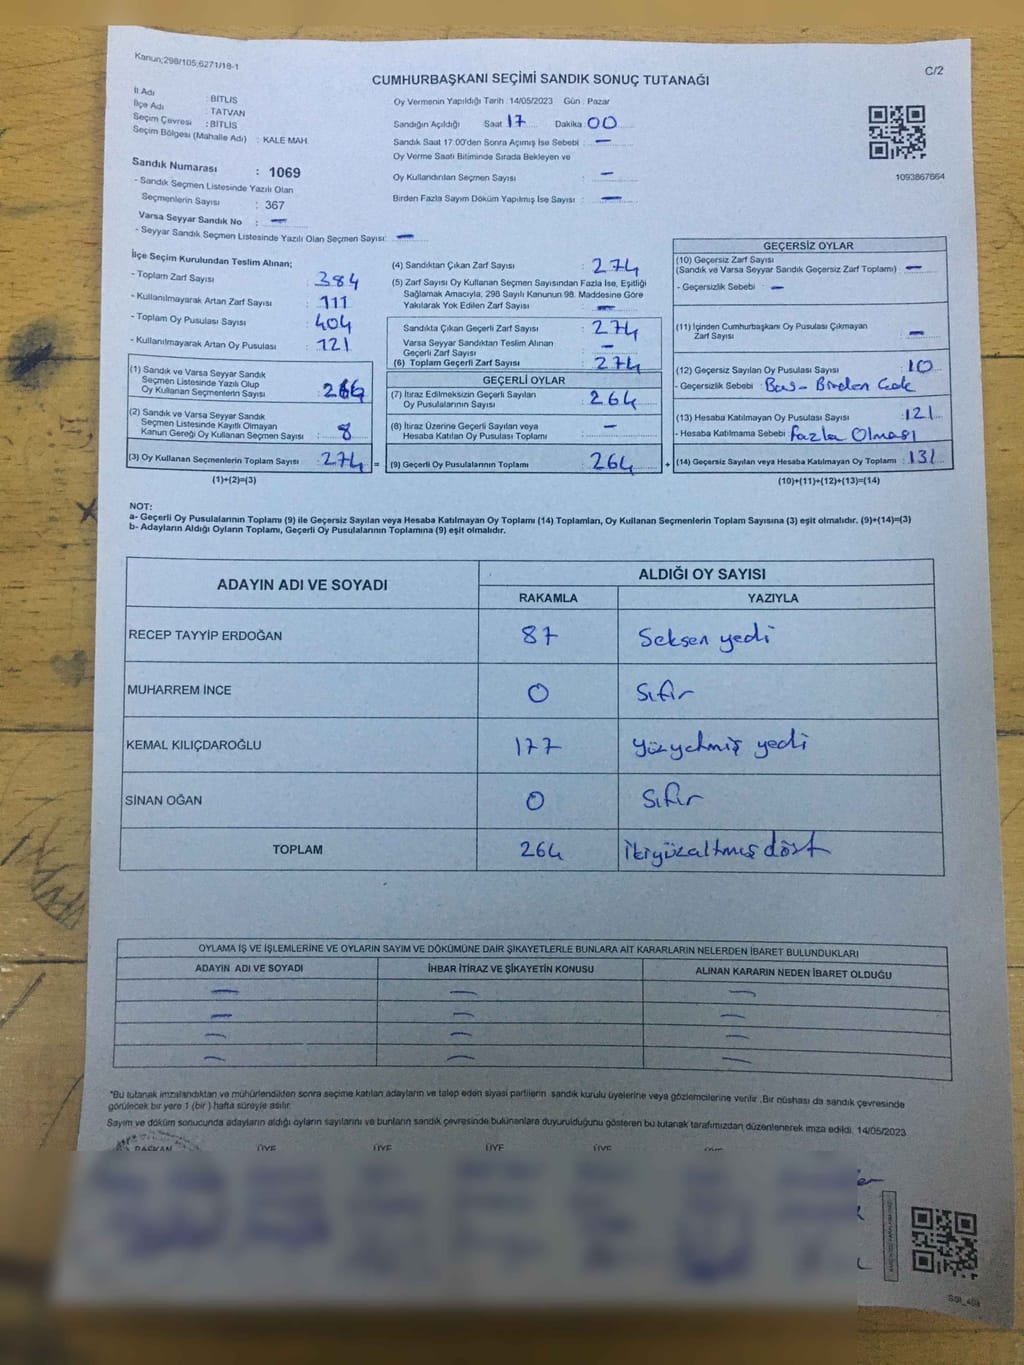 Kanun;298/105;6271/18-1
C/2
CUMHURBAŞKANI SEÇİMİ SANDIK SONUÇ TUTANAĞI
İl Adı : BİTLİS
İlçe Adı : TATVAN
Seçim Çevresi : BİTLİS
Seçim Bölgesi (Mahalle Adı) : KALE MAH.
Sandık Numarası : 1069
- Sandık Seçmen Listesinde Yazılı Olan
Seçmenlerin Sayısı : 367
Varsa Seyyar Sandık No : —
- Seyyar Sandık Seçmen Listesinde Yazılı Olan Seçmen Sayısı: —
Oy Vermenin Yapıldığı Tarih :14/05/2023 Gün : Pazar
Sandığın Açıldığı Saat 17 Dakika : 00
Sandık Saat 17:00'den Sonra Açımış İse Sebebi : —
Oy Verme Saati Bitiminde Sırada Bekleyen ve
Oy Kullandırılan Seçmen Sayısı : —
Birden Fazla Sayım Döküm Yapılmış İse Sayısı : —
1093867664
İlçe Seçim Kurulundan Teslim Alınan;
- Toplam Zarf Sayısı : 384
- Kullanılmayarak Artan Zarf Sayısı : 111
- Toplam Oy Pusulası Sayısı : 404
- Kullanılmayarak Artan Oy Pusulası : 121
(1) Sandık ve Varsa Seyyar Sandık
Seçmen Listesinde Yazılı Olup
Oy Kullanan Seçmenlerin Sayısı : 266
(2) Sandık ve Varsa Seyyar Sandık
Seçmen Listesinde Kayıtlı Olmayan
Kanun Gereği Oy Kullanan Seçmen Sayısı : 8
(3) Oy Kullanan Seçmenlerin Toplam Sayısı : 274 =
(1)+(2)=(3)
(4) Sandıktan Çıkan Zarf Sayısı : 274
(5) Zarf Sayısı Oy Kullanan Seçmen Sayısından Fazla İse, Eşitliği
Sağlamak Amacıyla, 298 Sayılı Kanunun 98. Maddesine Göre
Yakılarak Yok Edilen Zarf Sayısı : —
Sandıkta Çıkan Geçerli Zarf Sayısı : 274
Varsa Seyyar Sandıktan Teslim Alınan
Geçerli Zarf Sayısı : —
(6) Toplam Geçerli Zarf Sayısı : 274
GEÇERLİ OYLAR
(7) İtiraz Edilmeksizin Geçerli Sayılan
Oy Pusulalarının Sayısı : 264
(8) İtiraz Üzerine Geçerli Sayılan veya
Hesaba Katılan Oy Pusulası Toplamı : —
(9) Geçerli Oy Pusulalarının Toplamı : 264 +
GEÇERSİZ OYLAR
(10) Geçersiz Zarf Sayısı
(Sandık ve Varsa Seyyar Sandık Geçersiz Zarf Toplamı) : —
- Geçersizlik Sebebi : —
(11) İçinden Cumhurbaşkanı Oy Pusulası Çıkmayan
Zarf Sayısı : —
(12) Geçersiz Sayılan Oy Pusulası Sayısı : 10
- Geçersizlik Sebebi : Boş - Birden Çok
(13) Hesaba Katılmayan Oy Pusulası Sayısı : 121
- Hesaba Katılmama Sebebi : fazla Olması
(14) Geçersiz Sayılan veya Hesaba Katılmayan Oy Toplamı : 131
(10)+(11)+(12)+(13)=(14)
NOT:
a- Geçerli Oy Pusulalarının Toplamı (9) ile Geçersiz Sayılan veya Hesaba Katılmayan Oy Toplamı (14) Toplamları, Oy Kullanan Seçmenlerin Toplam Sayısına (3) eşit olmalıdır. (9)+(14)=(3)
b- Adayların Aldığı Oyların Toplamı, Geçerli Oy Pusulalarının Toplamına (9) eşit olmalıdır.
ADAYIN ADI VE SOYADI ALDIĞI OY SAYISI
RAKAMLA YAZIYLA
RECEP TAYYİP ERDOĞAN 87 Seksen yedi
MUHARREM İNCE 0 Sıfır
KEMAL KILIÇDAROĞLU 177 Yüzyetmiş yedi
SİNAN OĞAN 0 Sıfır
TOPLAM 264 İkiyüzaltmış dört
OYLAMA İŞ VE İŞLEMLERİNE VE OYLARIN SAYIM VE DÖKÜMÜNE DAİR ŞİKAYETLERLE BUNLARA AİT KARARLARIN NELERDEN İBARET BULUNDUKLARI
ADAYIN ADI VE SOYADI İHBAR İTİRAZ VE ŞİKAYETİN KONUSU ALINAN KARARIN NEDEN İBARET OLDUĞU
— — —
— — —
— — —
— — —
*Bu tutanak imzalandıktan ve mühürlendikten sonra seçime katılan adayların ve talep eden siyasi partilerin sandık kurulu üyelerine veya gözlemcilerine verilir .Bir nüshası da sandık çevresinde
görülecek bir yere 1 (bir ) hafta süreyle asılır.
Sayım ve döküm sonucunda adayların aldığı oyların sayılarını ve bunların sandık çevresinde bulunanlara duyurulduğunu gösteren bu tutanak tarafımızdan düzenlenerek imza edildi. 14/05/2023
BAŞKAN ÜYE ÜYE ÜYE ÜYE